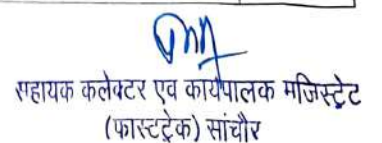 सहायक कलेक्टर एव कार्यपालक मजिस्ट्रेट
(फास्टट्रेक) सांचौर